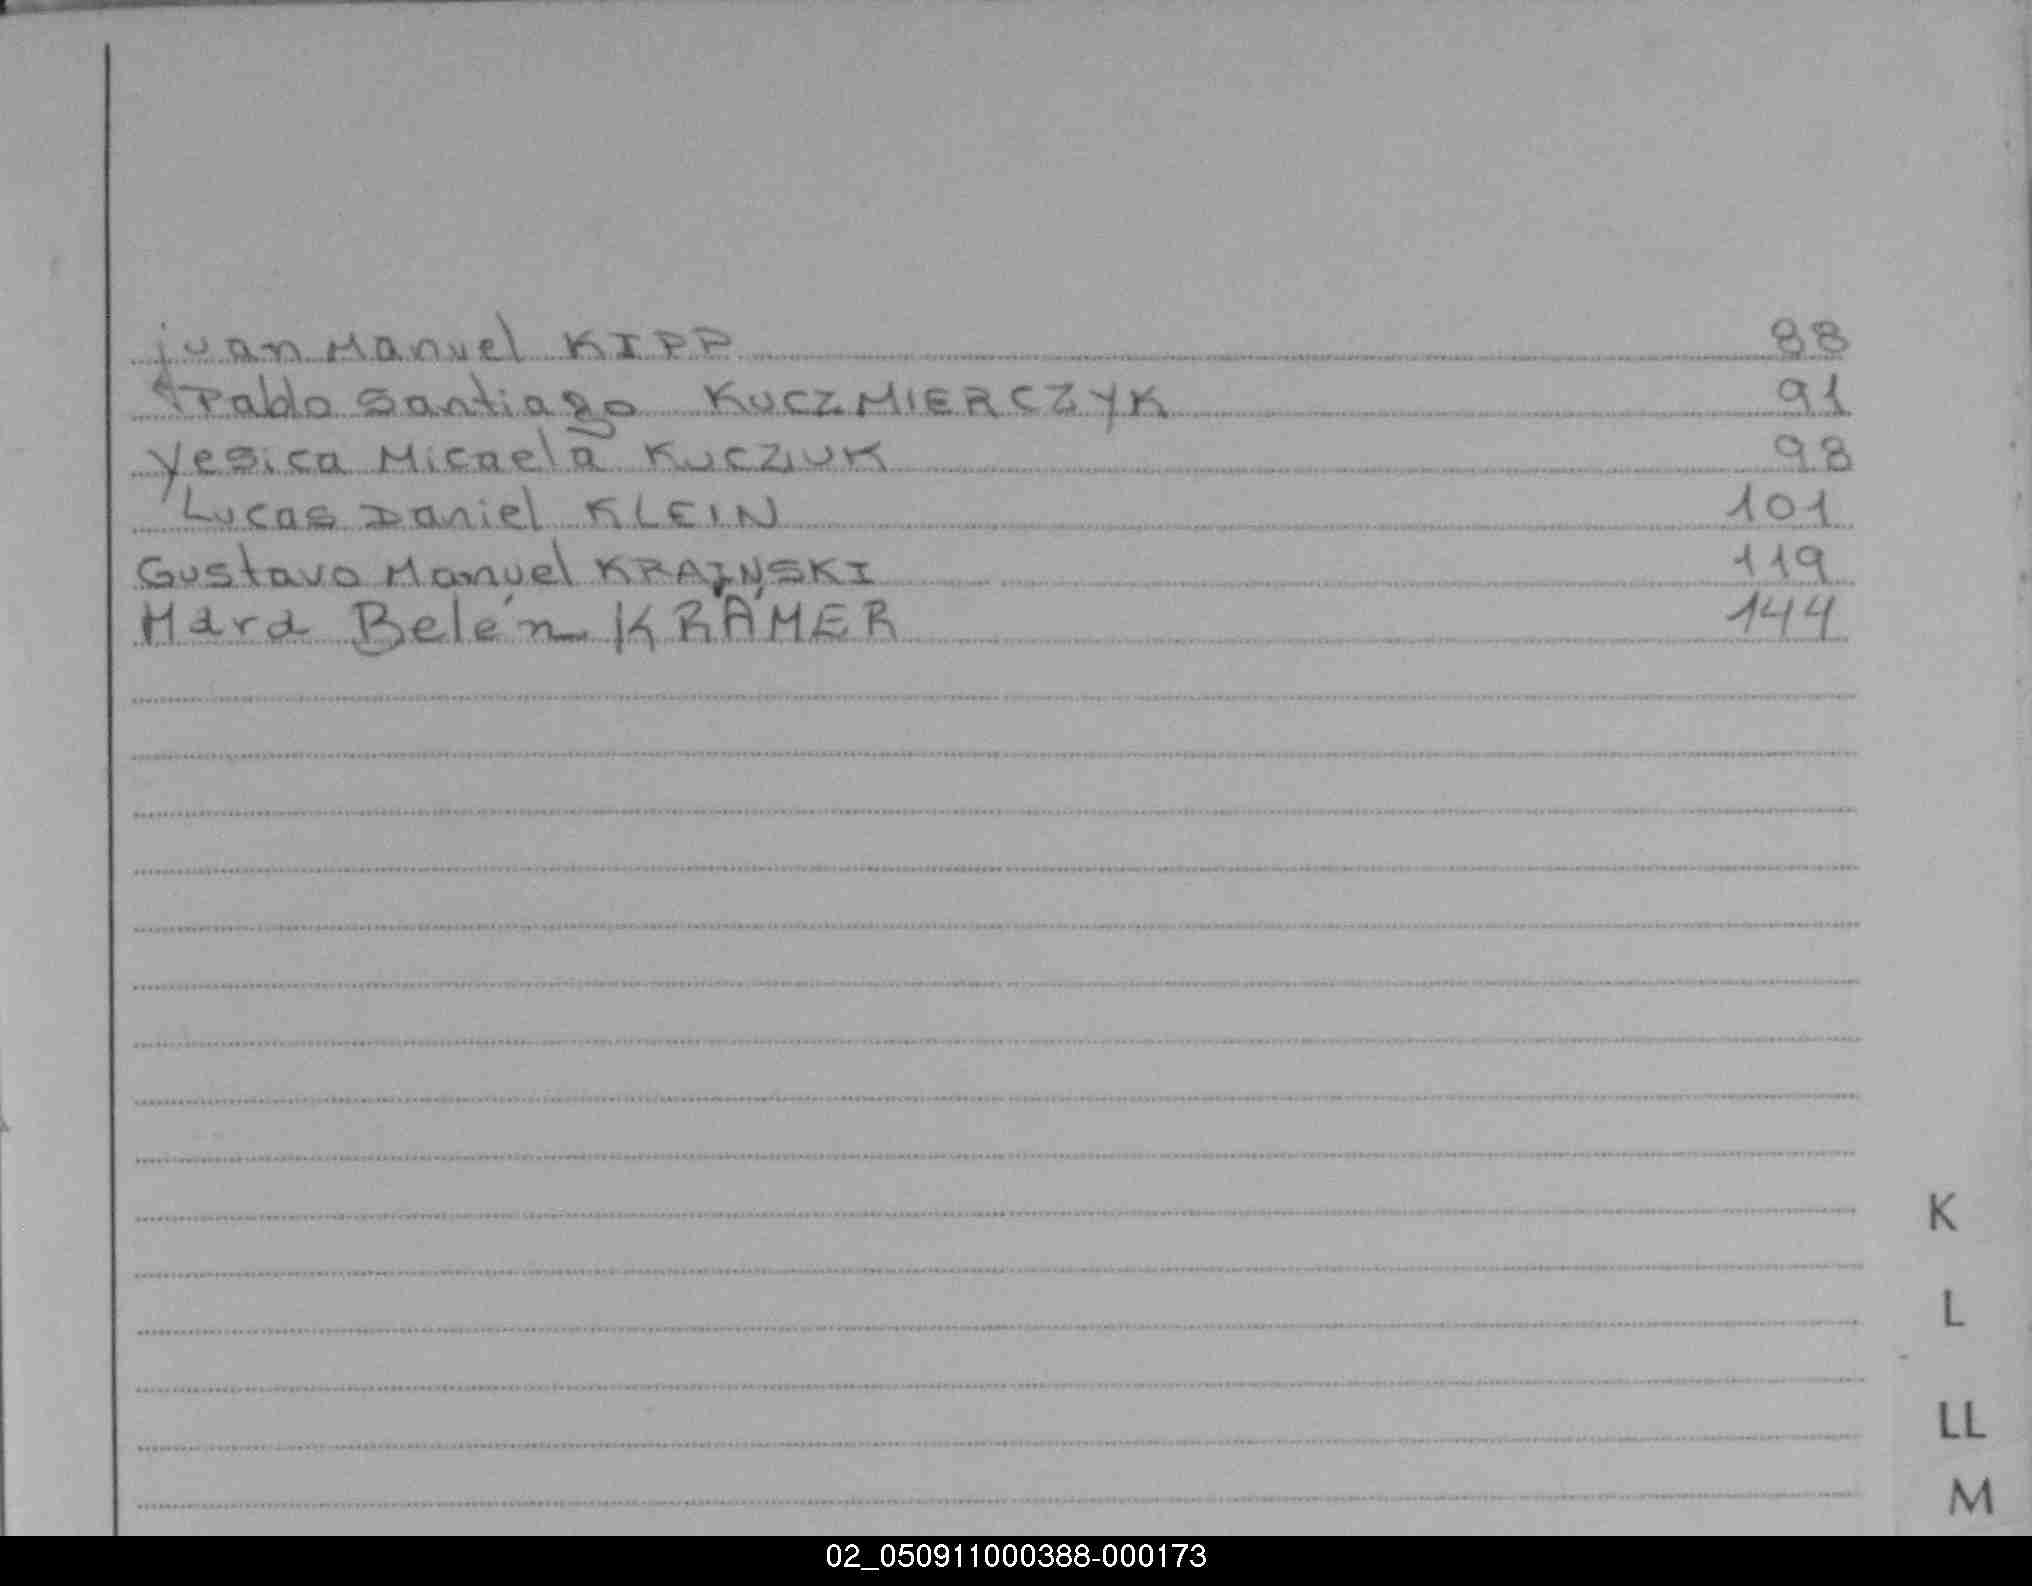 Juan Manuel KIPP 88
Pablo Santiago KUCZMIERCZYK 91
Yesica Micaela KUCZIUK 98
Lucas Daniel KLEIN 101
Gustavo Manuel KRAINSKI 119
Mara Belén KRÄMER 144
K
L
LL
M
02_050911000388-000173